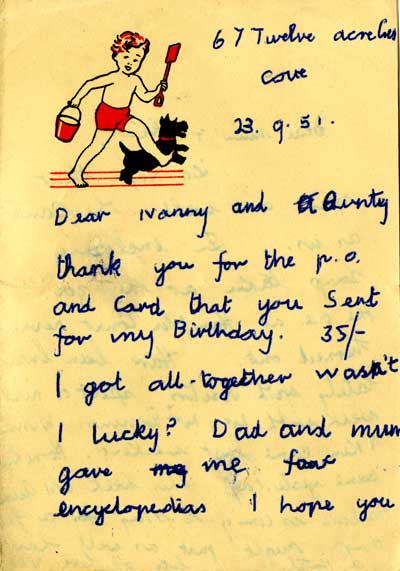 67 Twelve acre
Cove
23. 9. 51.
Dear Nanny and Aunty
thank you for the p.o.
and Card that you Sent
for my Birthday. 35/-
I got all-together wasn't
I lucky? Dad and mum
gave me four
encyclopedias I hope you